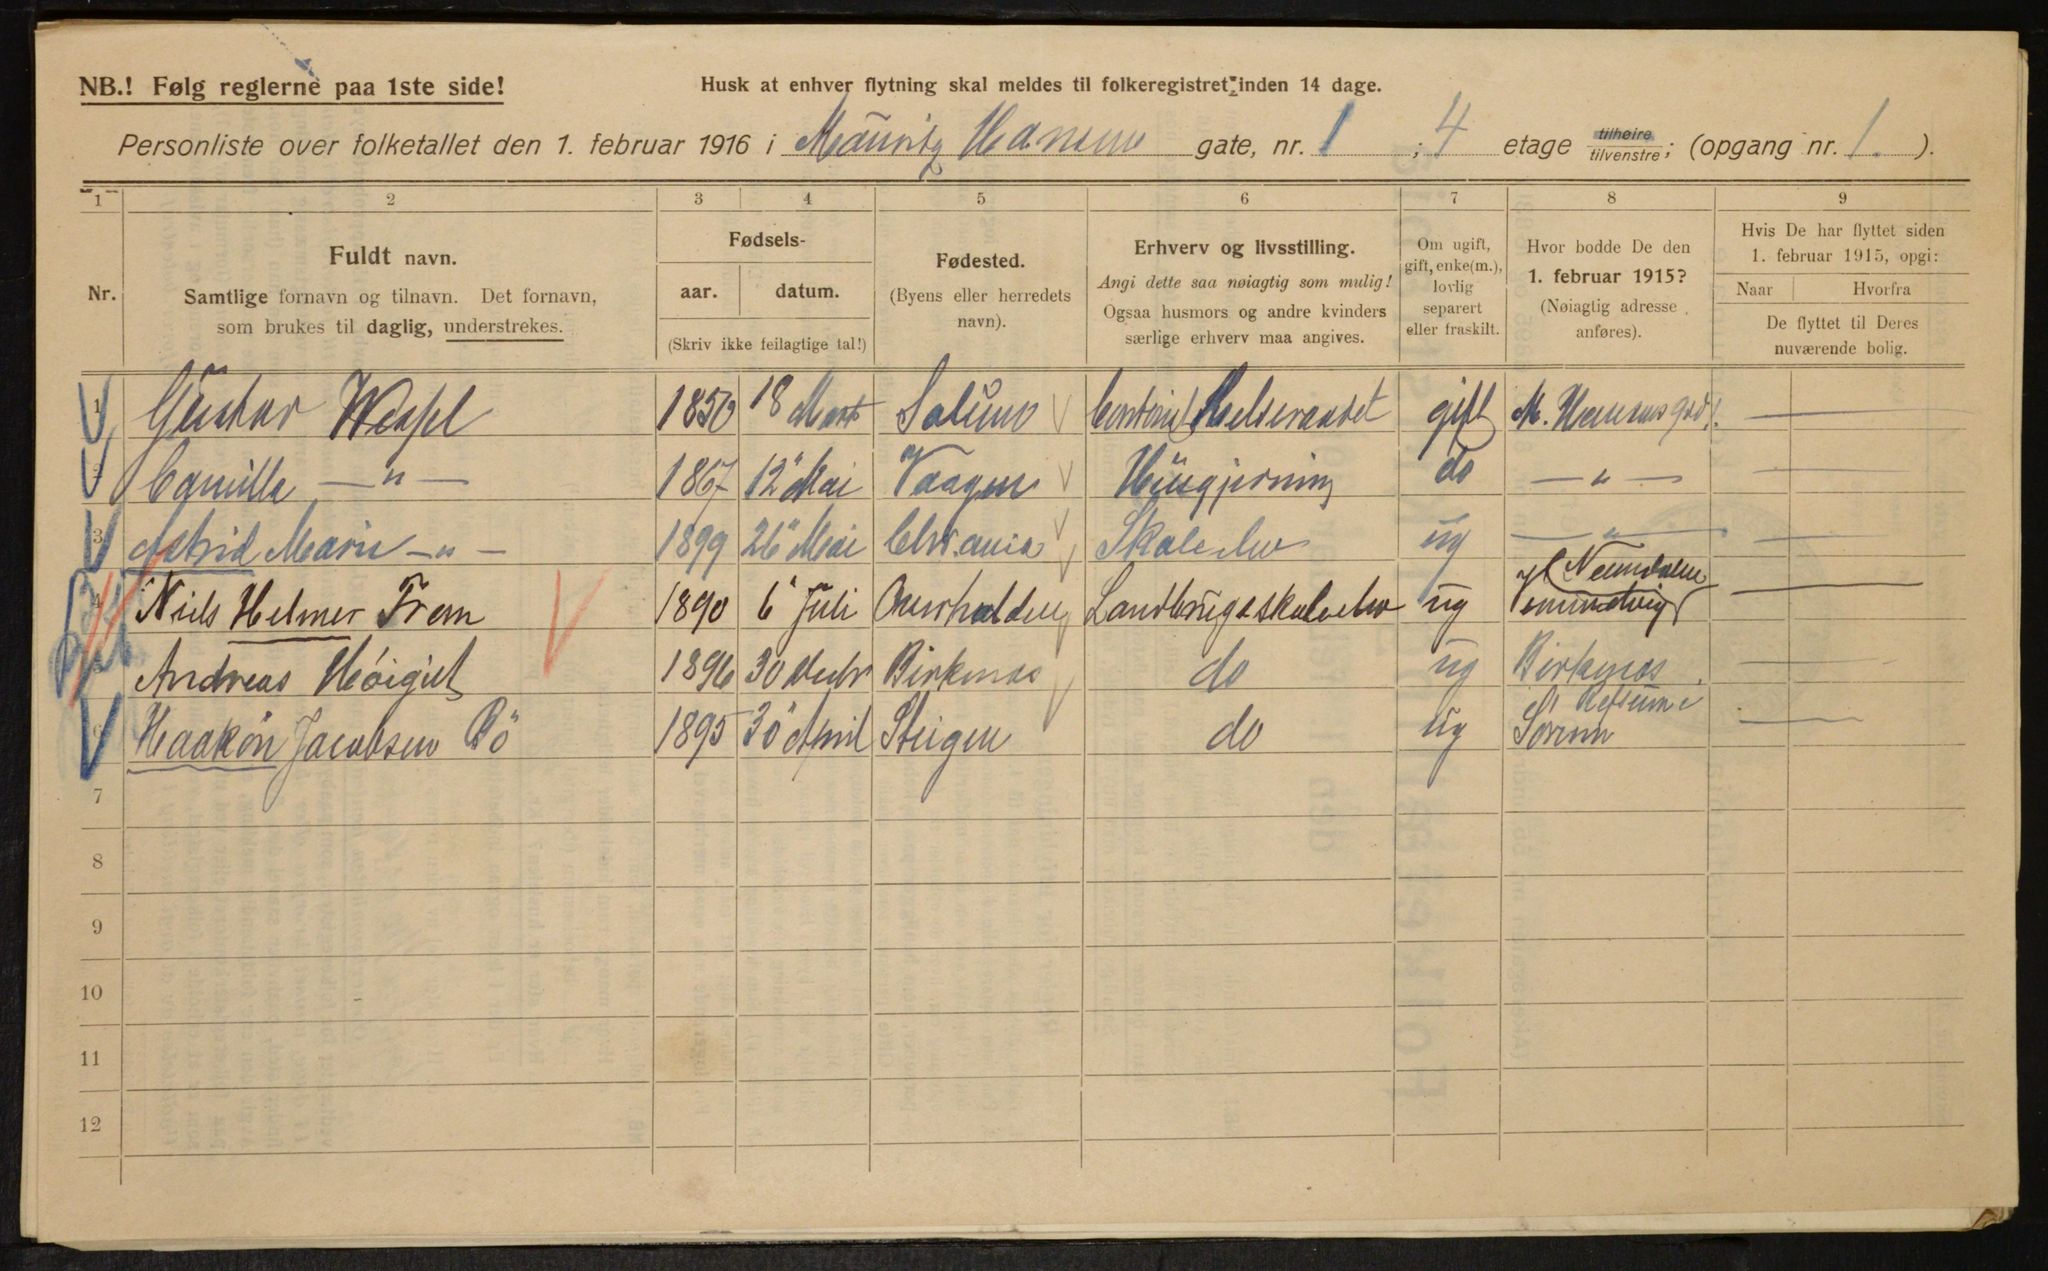 NB.! Følg reglerne paa 1ste side!
Husk at enhver flytning skal meldes til folkeregistret inden 14 dage.
Personliste over folketallet den 1. februar 1916 i Mauritz Hansens gate, nr. 1 ; 4 etage tilhøire tilvenstre ; (opgang nr. 1. ).
1 2 3 4 5 6 7 8 9
Nr.
Fuldt navn.
Samtlige fornavn og tilnavn. Det fornavn,
som brukes til daglig, understrekes.
Fødsels-
aar. datum.
(Skriv ikke feilagtige tal!)
Fødested.
(Byens eller herredets
navn).
Erhverv og livsstilling.
Angi dette saa nøiagtig som mulig!
Ogsaa husmors og andre kvinders
særlige erhverv maa angives.
Om ugift,
gift, enke(m.),
lovlig
separert
eller fraskilt.
Hvor bodde De den
1. februar 1915?
(Nøiagtig adresse
anføres).
Hvis De har flyttet siden
1. februar 1915, opgi:
Naar Hvorfra
De flyttet til Deres
nuværende bolig.
1 Gustav Wessel 1850 18 Marts Solum gift M. Hansens gad 1. —
2 Camilla — " — 1867 12" Mai Vaagen Husgjerning do — " — —
3 Astrid Marie — " — 1899 26" Mai Chr.ania Skoleelev ug — " — —
4 Niels Helmer Frem 1890 6" Juli Overhalden Landbrugsskoleelev ug Namdalen —
5 Andreas 1896 30 Birkenes do ug Birkenes —
6 Haakon Jacobsen Bö 1895 30" April Steigen do ug Sörum —
7
8
9
10
11
12